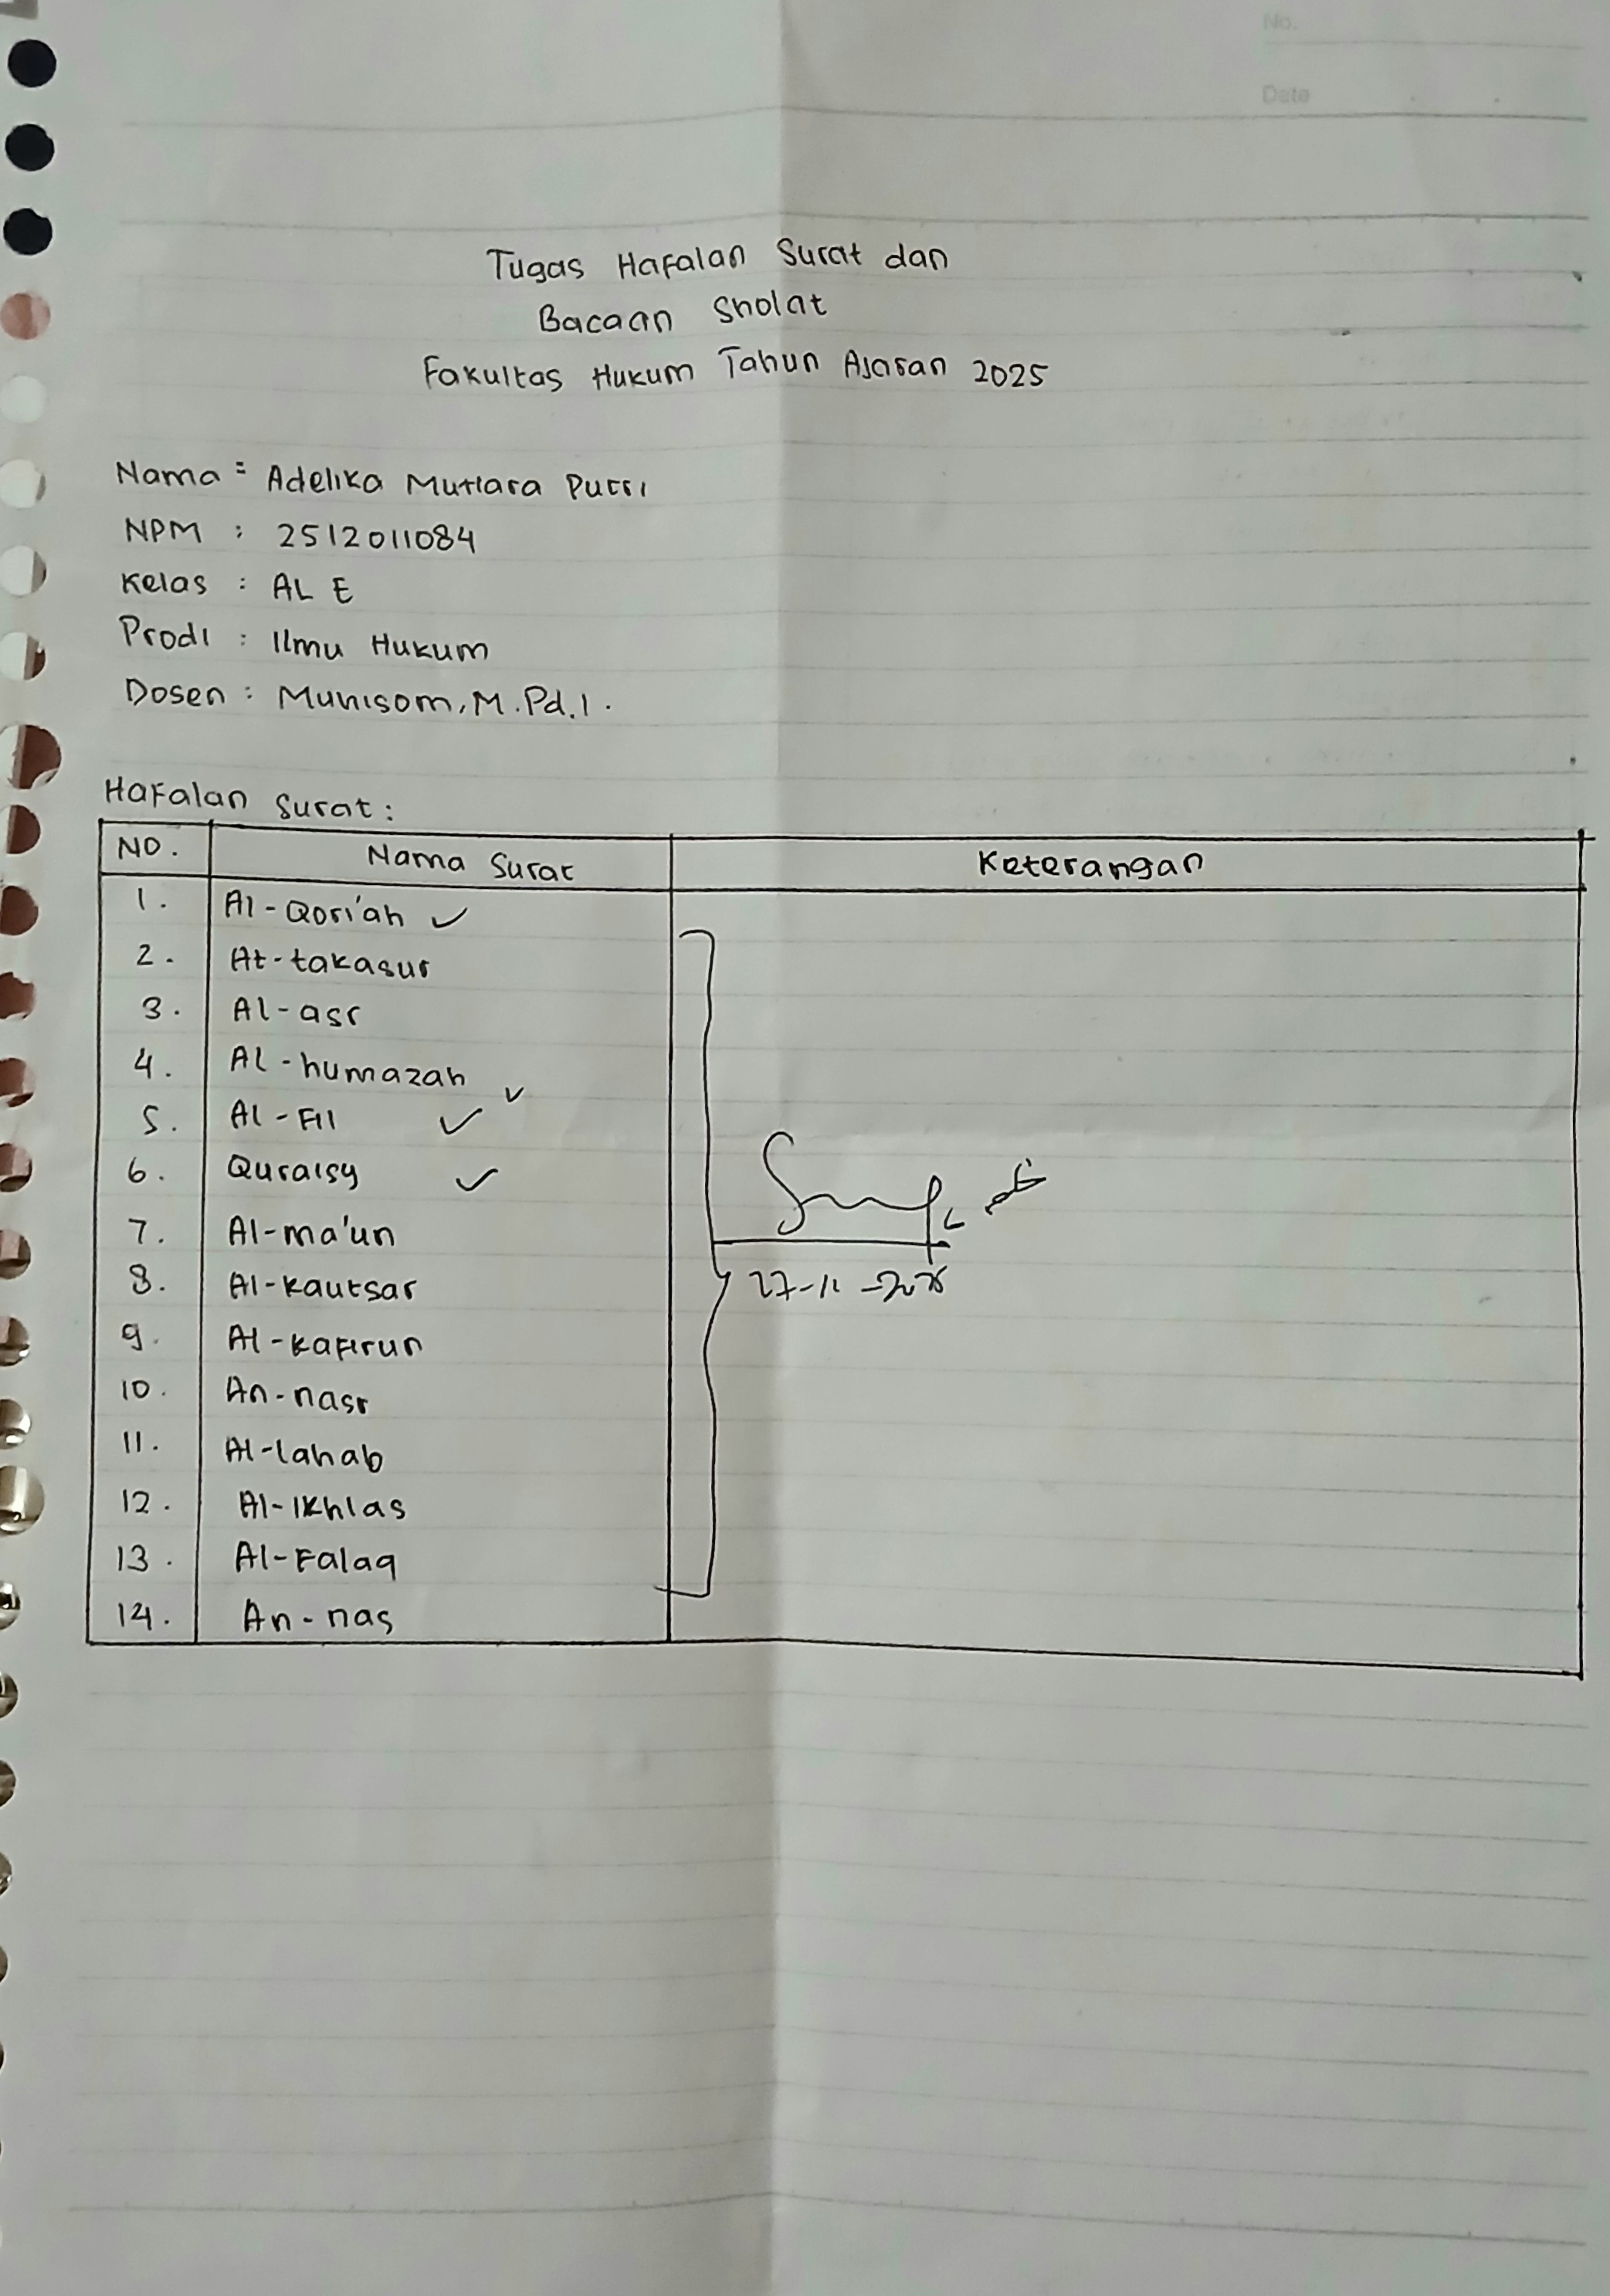 No.
Date
Tugas Hafalan Surat dan
Bacaan Sholat
Fakultas Hukum Tahun Ajaran 2025
Nama : Adelika Mutiara Putri
NPM : 2512011084
Kelas : AL E
Prodi : Ilmu Hukum
Dosen : Muhisom, M.Pd.I.
Hafalan Surat :
NO. Nama Surat Keterangan
1. Al-Qori'ah ✓
2. At-takasur
3. Al-asr
4. Al-humazah ✓
5. Al-Fil ✓
6. Quraisy ✓
7. Al-ma'un
8. Al-kautsar
9. Al-kafirun
10. An-nasr
11. Al-lahab
12. Al-Ikhlas
13. Al-Falaq
14. An-nas